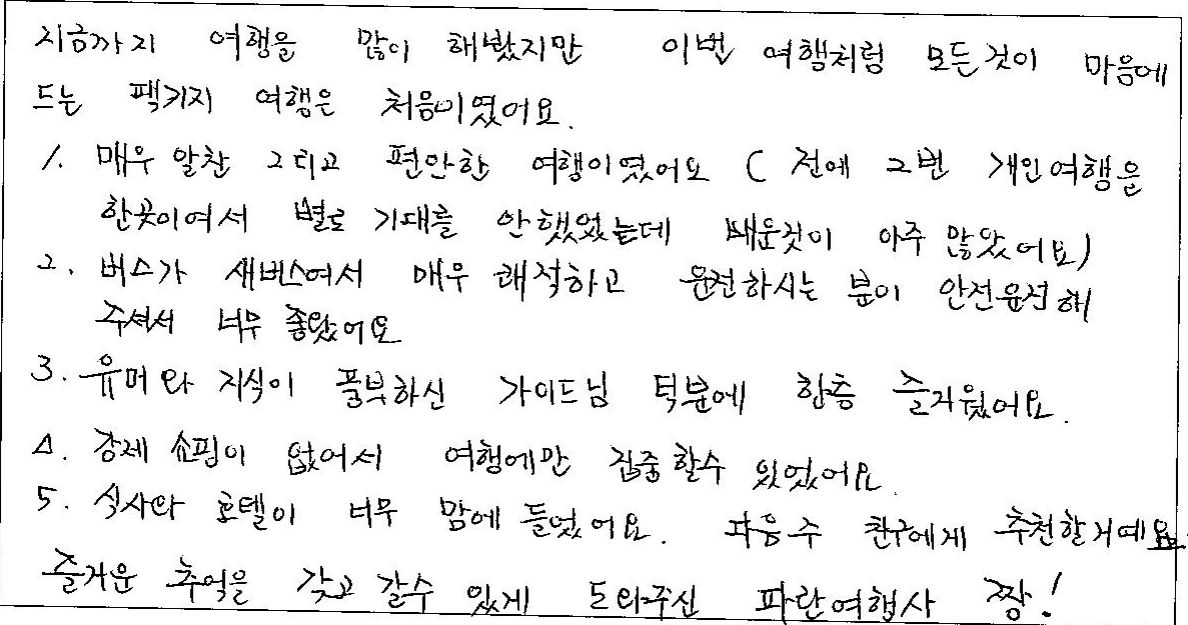 지금까지 여행을 많이 해봤지만 이번 여행처럼 모든것이 마음에
드는 팩키지 여행은 처음이였어요.
1. 매우 알찬 그리고 편안한 여행이였어요 ( 전에 2번 개인여행을
한곳이여서 별로 기대를 안했었는데 배운것이 아주 많았어요)
2. 버스가 새버스여서 매우 쾌적하고 운전하시는 분이 안전운전해
주셔서 너무 좋았어요
3. 유머와 지식이 풍부하신 가이드님 덕분에 한층 즐거웠어요.
4. 강제 쇼핑이 없어서 여행에만 집중할수 있었어요.
5. 식사와 호텔이 너무 맘에 들었어요. 다음주 친구에게 추천할거예요
즐거운 추억을 갖고 갈수 있게 도와주신 파란여행사 짱!